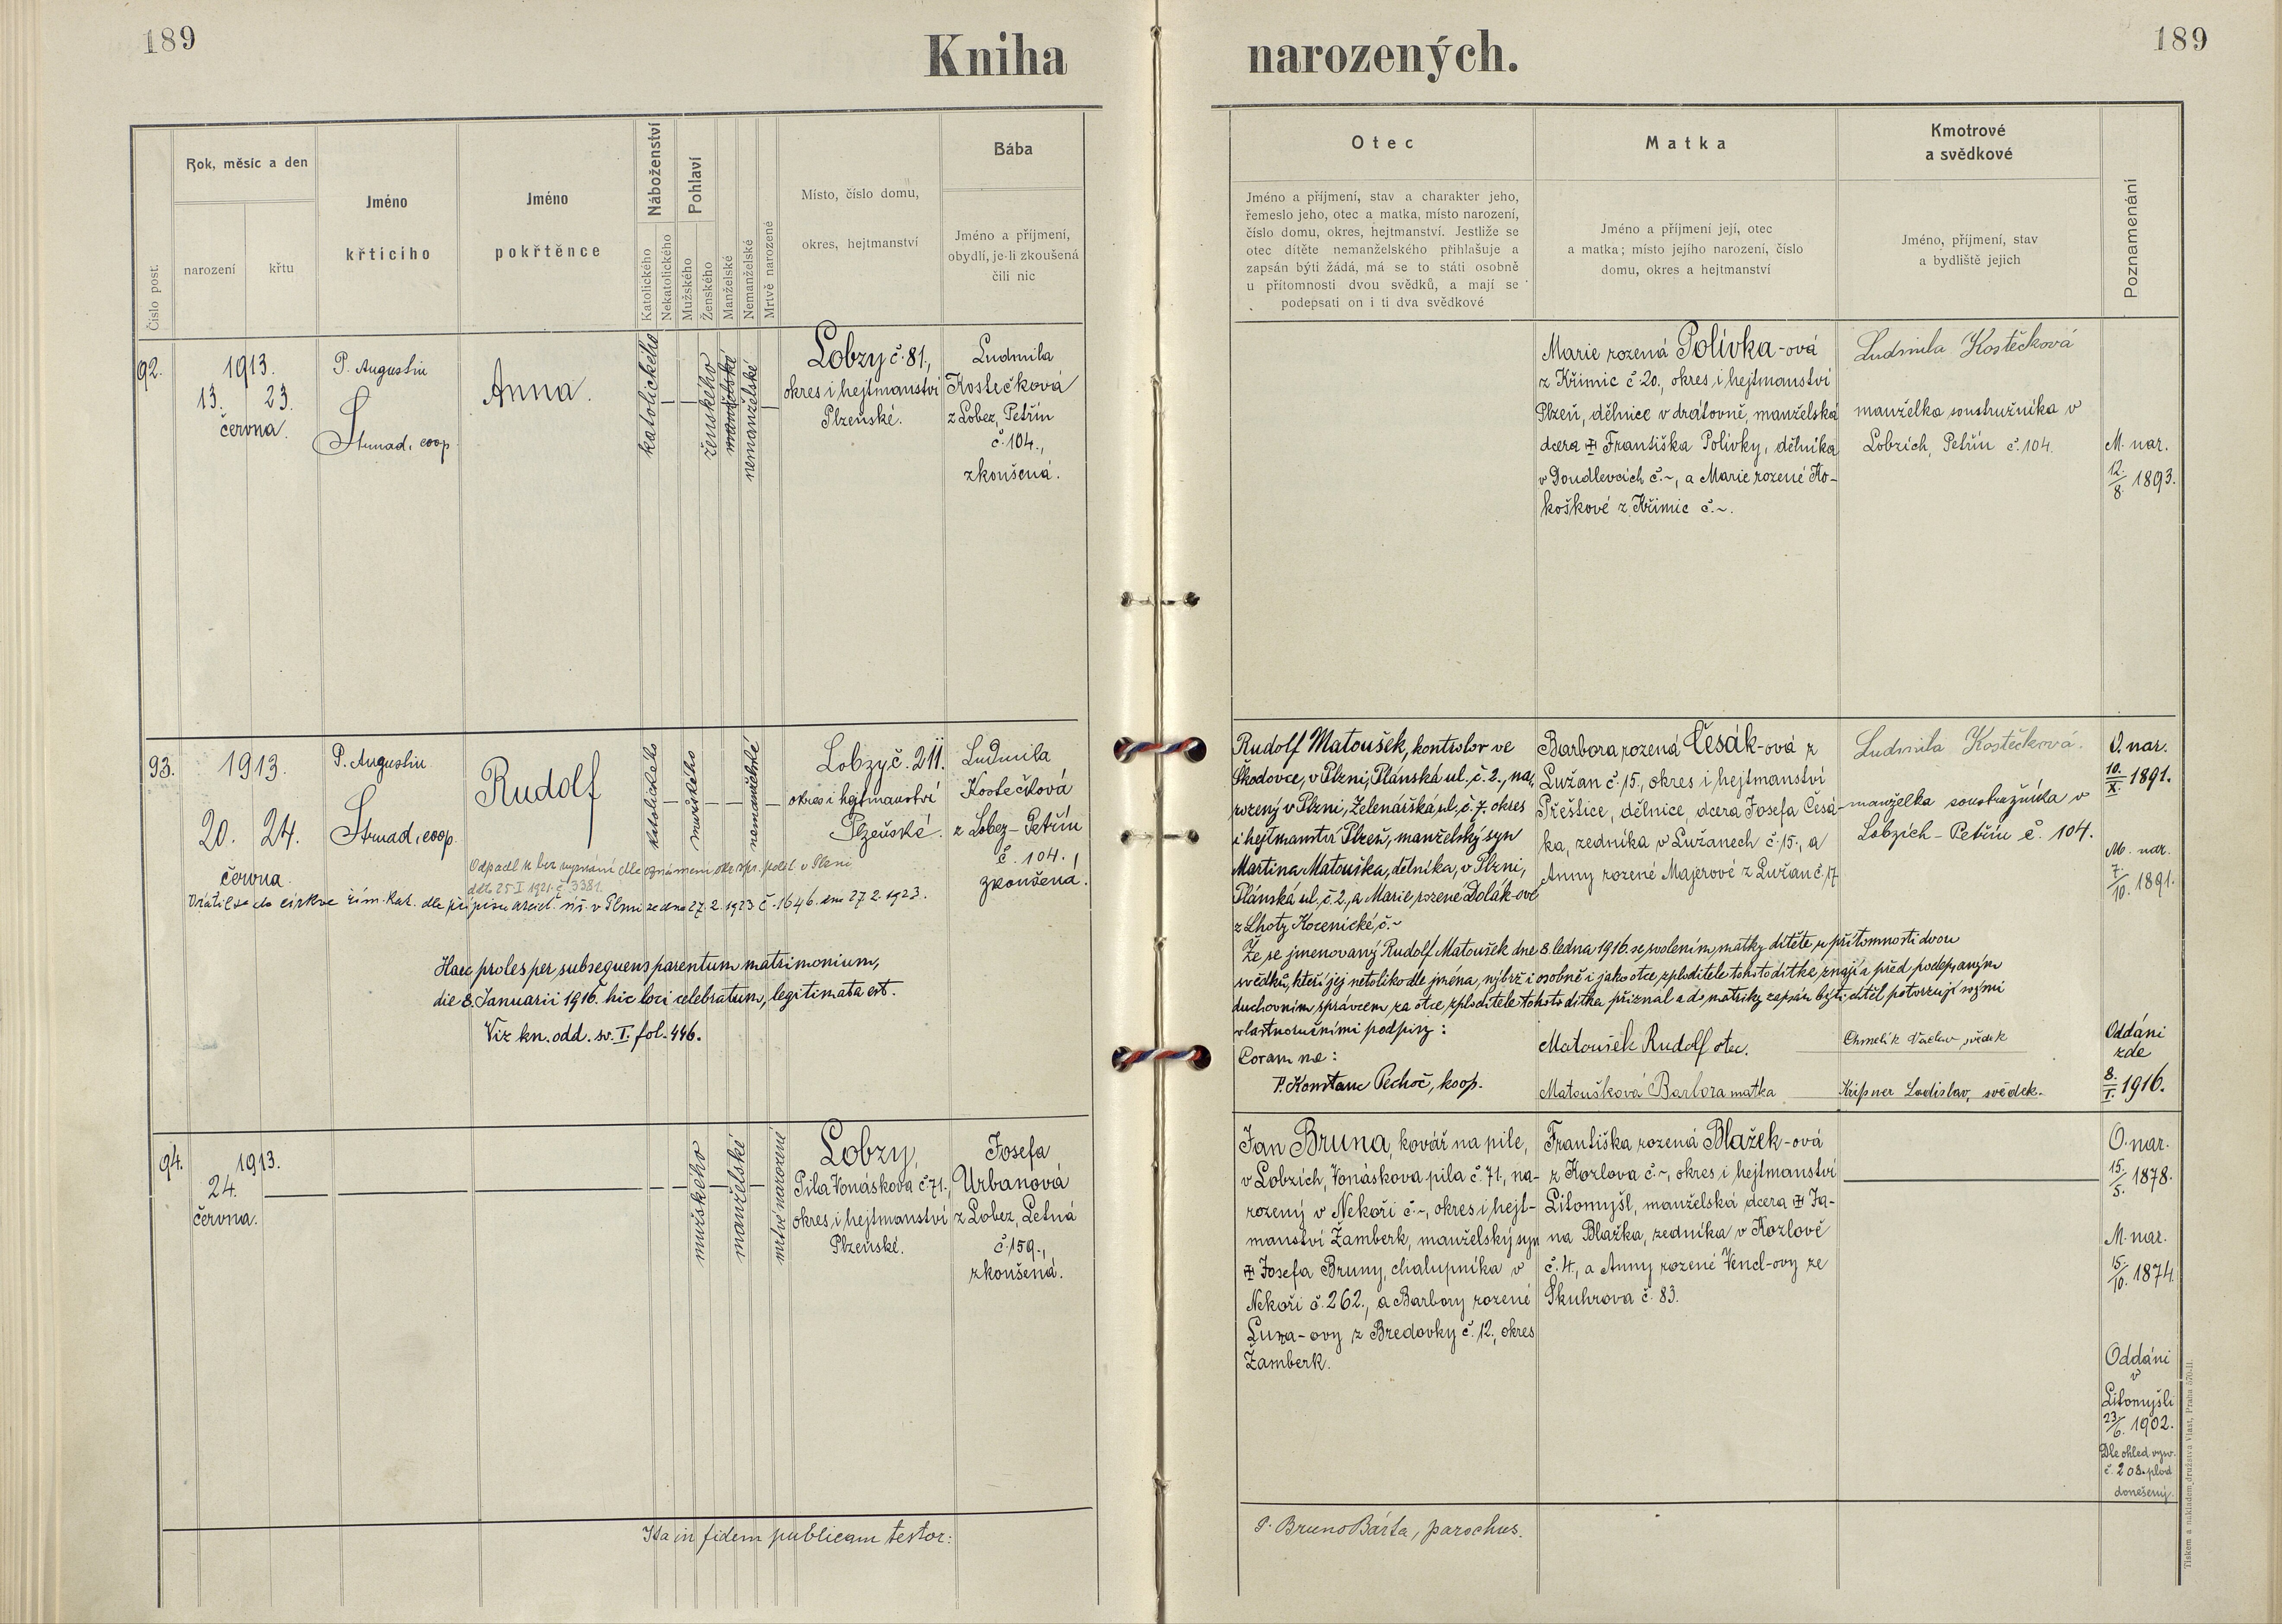 189
Kniha narozených.
189
Číslo post.
Rok, měsíc a den
narození
křtu
Jméno
křticího
Jméno
pokřtěnce
Náboženství
Katolického
Nekatolického
Pohlaví
Mužského
Ženského
Manželské
Nemanželské
Mrtvě narozené
Místo, číslo domu,
okres, hejtmanství
Bába
Jméno a příjmení,
obydlí, je-li zkoušená
čili nic
Otec
Jméno a příjmení, stav a charakter jeho,
řemeslo jeho, otec a matka, místo narození,
číslo domu, okres, hejtmanství. Jestliže se
otec dítěte nemanželského přihlašuje a
zapsán býti žádá, má se to státi osobně
u přítomnosti dvou svědků, a mají se
podepsati on i ti dva svědkové
Matka
Jméno a příjmení její, otec
a matka; místo jejího narození, číslo
domu, okres a hejtmanství
Kmotrové
a svědkové
Jméno, příjmení, stav
a bydliště jejich
Poznamenání
92.
1913.
13. 23.
června.
P. Augustin
Strnad, coop.
Anna.
katolického
ženského
manželské
nemanželské
Lobzy č. 81,
okres i hejtmanství
Plzeňské.
Ludmila
Kostečková
z Lobez, Petřín
č. 104.,
zkoušená.
Marie rozená Polívka-ová
z Křimic č 20., okres i hejtmanství
Plzeň, dělnice v drátovně, manželská
dcera ✠ Františka Polívky, dělníka
v Doudlevcích č.~, a Marie rozené Ko-
koškové z Křimic č.~.
Ludmila Kostečková
manželka soustružníka v
Lobzích, Petřín č. 104.
M. nar.
12./8. 1893.
93.
1913.
20. 24.
června.
P. Augustin
Strnad, coop.
Rudolf
katolického
mužského
nemanželské
Lobzy č. 211.
okres i hejtmanství
Plzeňské.
Ludmila
Kostečková
z Lobez-Petřín
č. 104.,
zkoušená.
Odpadl k bez vyznání dle oznámení okr. spr. polit. v Plzni
ddto 25-I 1921. č. 3381.
Vrátil se do církve řím. kat. dle přípisu arciď. úř. v Plzni ze dne 27. 2. 1923 č. 1646. dne 27. 2. 1923.
Haec proles per subsequens parentum matrimonium,
die 8. Januarii 1916 hic loci celebratum, legitimata est.
Viz kn. odd. sv. I. fol. 446.
Rudolf Matoušek, kontrolor ve
Škodovce, v Plzni, Plánská ul. č. 2., na-
rozený v Plzni, Zelenářská ul. č. 7. okres
i hejtmanství Plzeň, manželský syn
Martina Matouška, dělníka, v Plzni,
Plánská ul. č. 2., a Marie rozené Dolák-ové
z Lhoty Kocenické, č.~
Barbora rozená Česák-ová z
Lužan č. 15., okres i hejtmanství
Přeštice, dělnice, dcera Josefa Česá-
ka, zedníka v Lužanech č. 15., a
Anny rozené Majerové z Lužan č. 17
Ludmila Kostečková.
manželka soustružníka v
Lobzích-Petřín č. 104.
O. nar.
10./X. 1891.
M. nar.
7./10. 1891.
Že se jmenovaný Rudolf Matoušek dne 8 ledna 1916. se svolením matky dítěte, u přítomnosti dvou
svědků, kteří jej netoliko dle jména, nýbrž i osobně i jako otce zploditele tohoto dítka znají a před podepsaným
duchovním správcem za otce, zploditele tohoto dítka přiznal a do matriky zapsán býti chtěl potvrzují svými
vlastnoručními podpisy:
Coram me:
P. Konstanc Pechoč, koop.
Matoušek Rudolf otec.
Matoušková Barbora matka
Chmelík Václav svědek
Kripner Ladislav, svědek.
Oddáni
zde
8./I. 1916.
94.
1913.
24.
června.
mužského
manželské
mrtvě narozené
Lobzy,
Pila Vonáskova č. 71.,
okres i hejtmanství
Plzeňské.
Josefa
Urbanová
z Lobez, Letná
č. 159.,
zkoušená.
Jan Bruna, kovář na pile,
v Lobzích, Vonáskova pila č. 71., na-
rozený v Nekoři č.~, okres i hejt-
manství Žamberk, manželský syn
✠ Josefa Bruny, chalupníka v
Nekoři č. 262., a Barbory rozené
Luxa-ovy z Bredovky č. 12., okres
Žamberk.
Františka rozená Blažek-ová
z Kozlova č.~, okres i hejtmanství
Litomyšl, manželská dcera ✠ Ja-
na Blažka, zedníka v Kozlově
č. 4., a Anny rozené Vencl-ovy ze
Skuhrova č. 83.
O. nar.
15./5. 1878.
M. nar.
15./10. 1874.
Oddáni
v
Litomyšli
23/6. 1902.
Dle ohled. vysv.
č. 208. plod
donešený.
Ita in fidem publicam testor:
P. Bruno Bárta, parochus.
Tiskem a nákladem družstva Vlast, Praha 570-II.